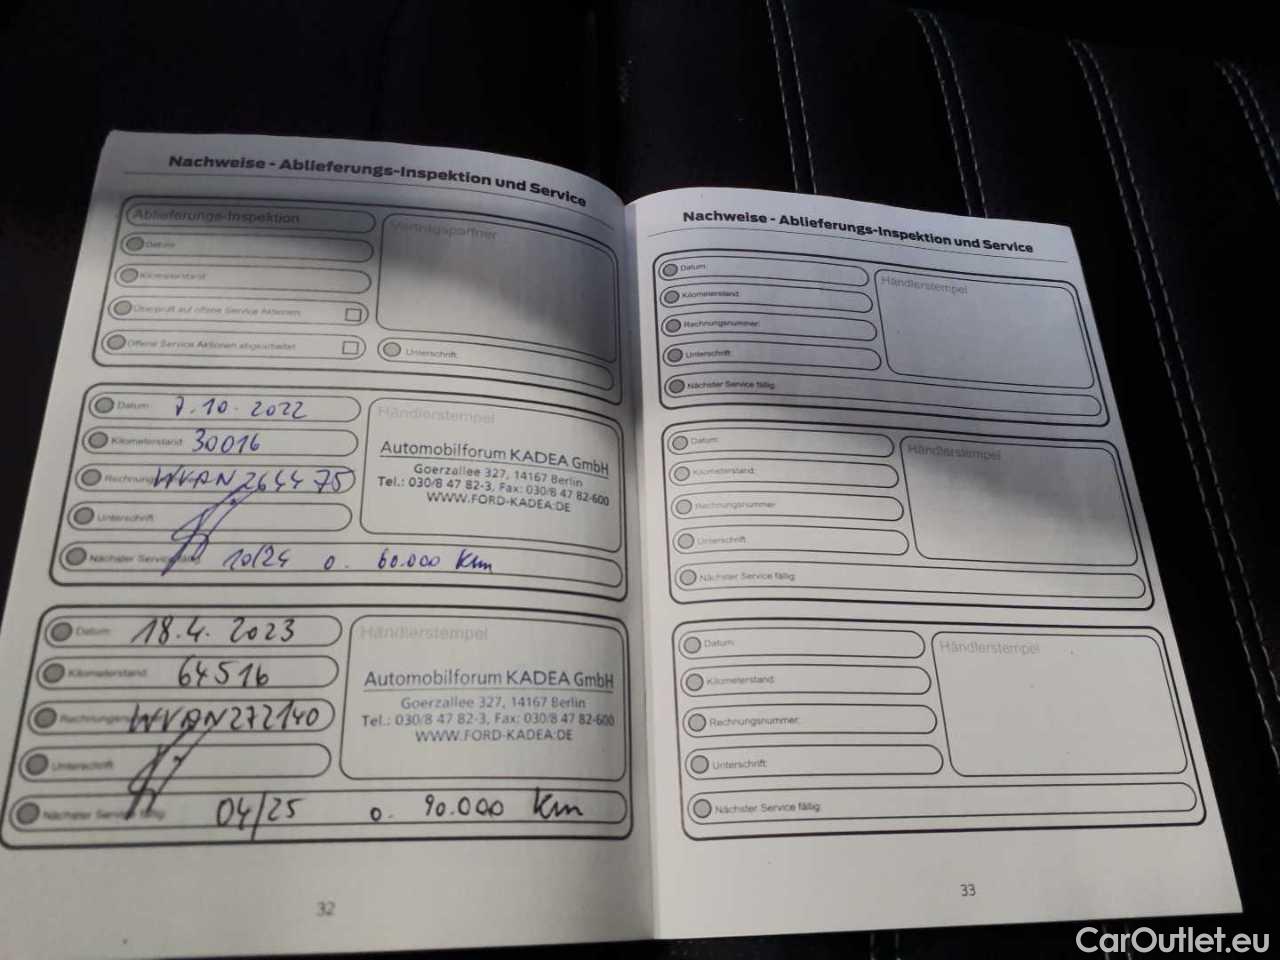 Nachweise - Ablieferungs-Inspektion und Service
Ablieferungs-Inspektion
Vertragspartner
Datum:
Kilometerstand:
Überprüft auf offene Service Aktionen:
Offene Service Aktionen abgearbeitet:
Unterschrift:
Datum: 7.10.2022
Händlerstempel
Kilometerstand: 30016
Automobilforum KADEA GmbH
Goerzallee 327, 14167 Berlin
Tel.: 030/8 47 82-3, Fax: 030/8 47 82-600
WWW.FORD-KADEA.DE
WVAN264475
Unterschrift:
Nächster Service fällig: 10/24 o. 60.000 Km
Datum: 18.4.2023
Händlerstempel
Kilometerstand: 64516
Automobilforum KADEA GmbH
Goerzallee 327, 14167 Berlin
Tel.: 030/8 47 82-3, Fax: 030/8 47 82-600
WWW.FORD-KADEA.DE
WVAN272140
Unterschrift:
Nächster Service fällig: 04/25 o. 90.000 Km
32
Nachweise - Ablieferungs-Inspektion und Service
Datum:
Händlerstempel
Kilometerstand:
Rechnungsnummer:
Unterschrift:
Nächster Service fällig:
Datum:
Händlerstempel
Kilometerstand:
Rechnungsnummer:
Unterschrift:
Nächster Service fällig:
Datum:
Händlerstempel
Kilometerstand:
Rechnungsnummer:
Unterschrift:
Nächster Service fällig:
33
CarOutlet.eu